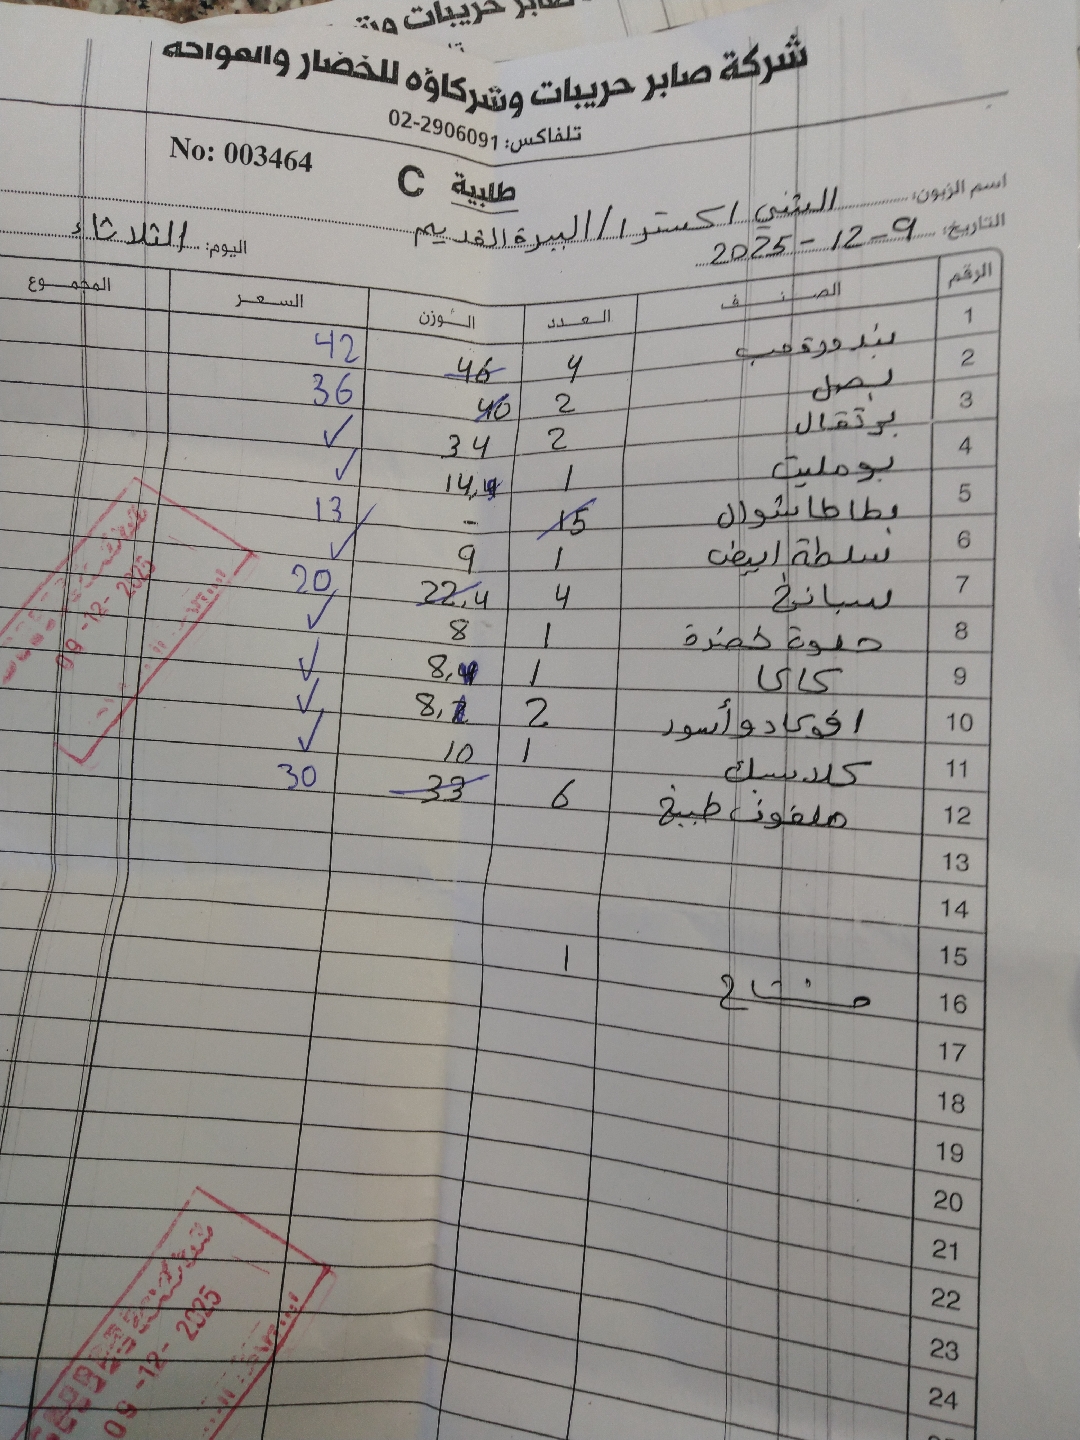 شركة صابر حريبات وشركاؤه للخضار والفواكه
تلفاكس: 02-2906091
No: 003464
طلبية C
اسم الزبون: الثني اكسترا / البيرة القديم
التاريخ: 9-12-2025 اليوم: الثلاثاء
الرقم الصنف العدد الوزن السعر المجموع
1 بندورة حب 4 46 42
2 بصل 2 40 36
3 برتقال 2 34 ✓
4 بومليت 1 14,4 ✓
5 بطاطا شوال 15 - 13
6 سلطة ابيض 1 9 ✓
7 سبانخ 4 22,4 20
8 حلوة خضرة 1 8 ✓
9 كاكا 1 8, ✓
10 افوكادو أسود 2 8, ✓
11 كلاسيك 1 10 ✓
12 ملفوف طبيخ 6 33 30
13
14
15
16 مشتاح 1
17
18
19
20
21
22
23
24
09-12-2025
09-12-2025